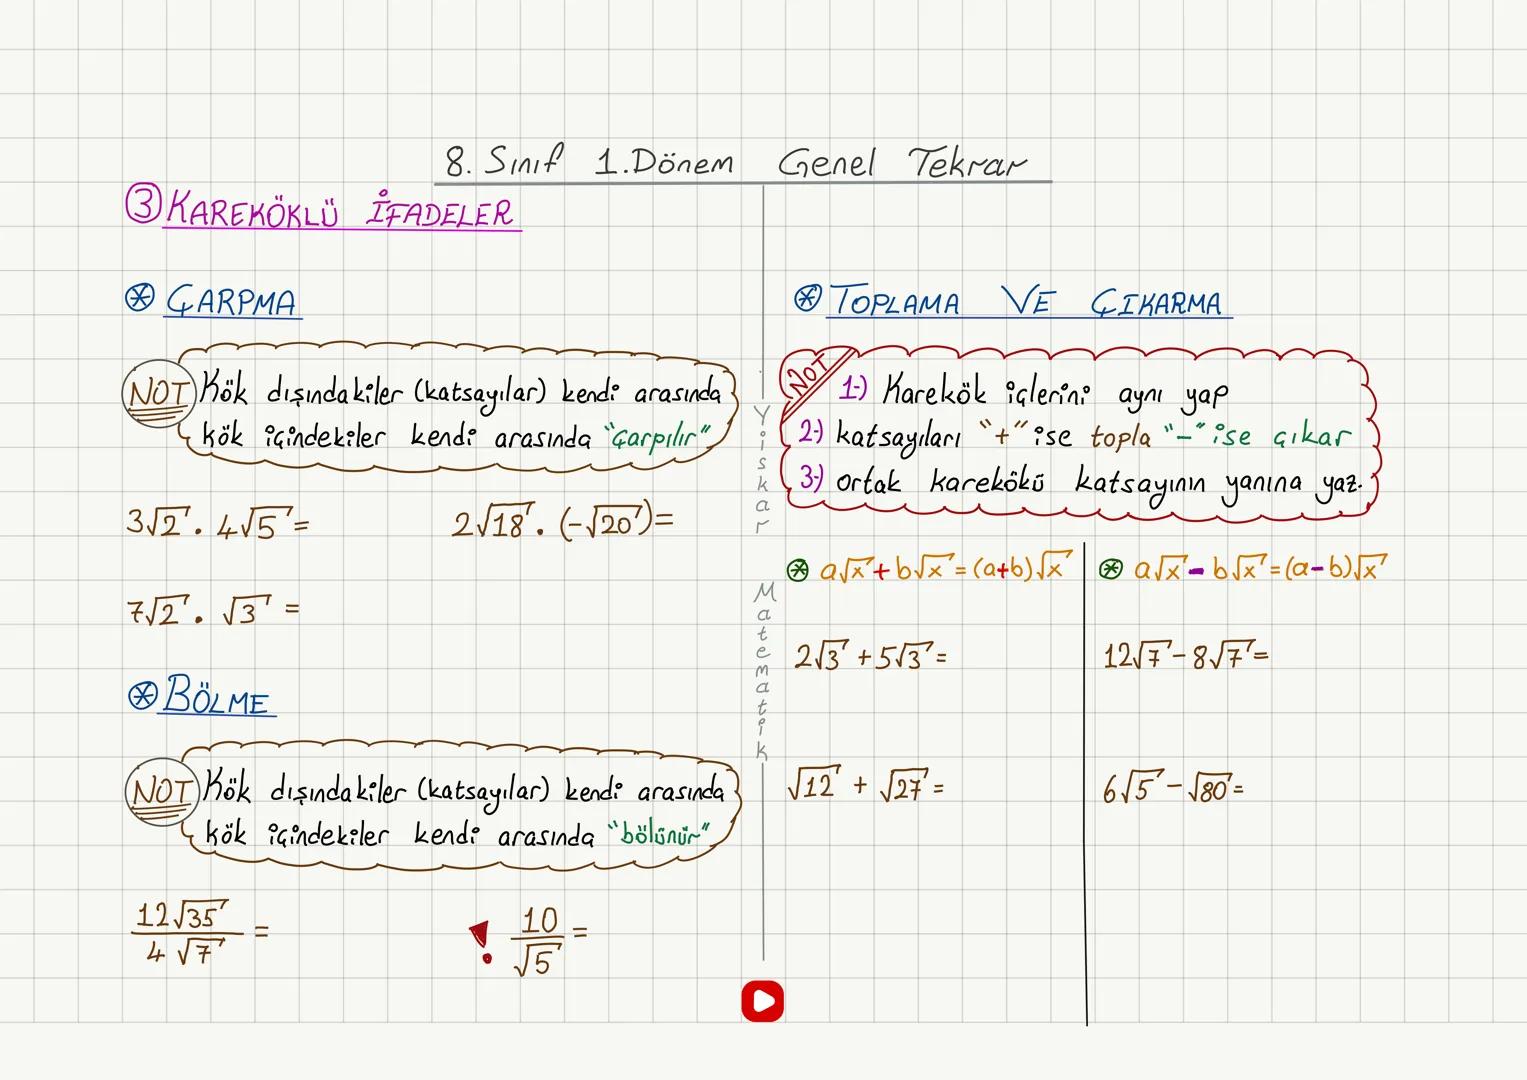 8. Sınıf 1.Dönem Genel Tekrar
③ KAREKÖKLÜ İFADELER
⊛ ÇARPMA
NOT Kök dışındakiler (katsayılar) kendi arasında
kök içindekiler kendi arasında "Çarpılır"
3√2 . 4√5 =
2√18 . (-√20) =
7√2 . √3 =
⊛ BÖLME
NOT Kök dışındakiler (katsayılar) kendi arasında
kök içindekiler kendi arasında "bölünür"
12√35 / 4√7 =
! 10 / √5 =
Yiskar Matematik
⊛ TOPLAMA VE ÇIKARMA
NOT
1-) Karekök içlerini aynı yap
2-) katsayıları "+" ise topla "-" ise çıkar
3-) ortak karekökü katsayının yanına yaz.
⊛ a√x + b√x = (a+b)√x
2√3 + 5√3 =
√12 + √27 =
⊛ a√x - b√x = (a-b)√x
12√7 - 8√7 =
6√5 - √80 =